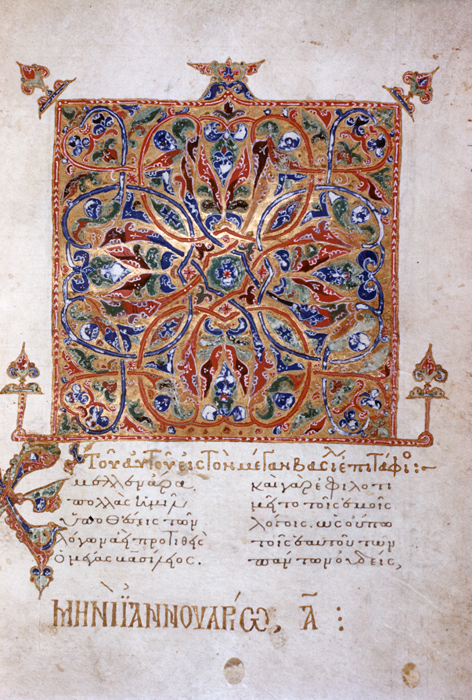 Τοῦ αὐτοῦ εἰς τὸν μέγαν Βασίλ ἐπιτάφιο :~
Ἔμελλεν ἄρα
πολλὰς ἡμῖν
ὑποθέσεις τῶν
λόγων ἀεὶ προτιθεὶς
ὁ μέγας βασίλειος.
καὶ γὰρ ἐφιλοτι
μεῖτο τοῖς ἐμοῖς
λόγοις, ὡς οὔπω
τοῖς ἑαυτοῦ τῶν
πάντων οὐδείς,
ΜΗΝῚ ἸΑΝΝΟΥΑΡΊΩ, Α :